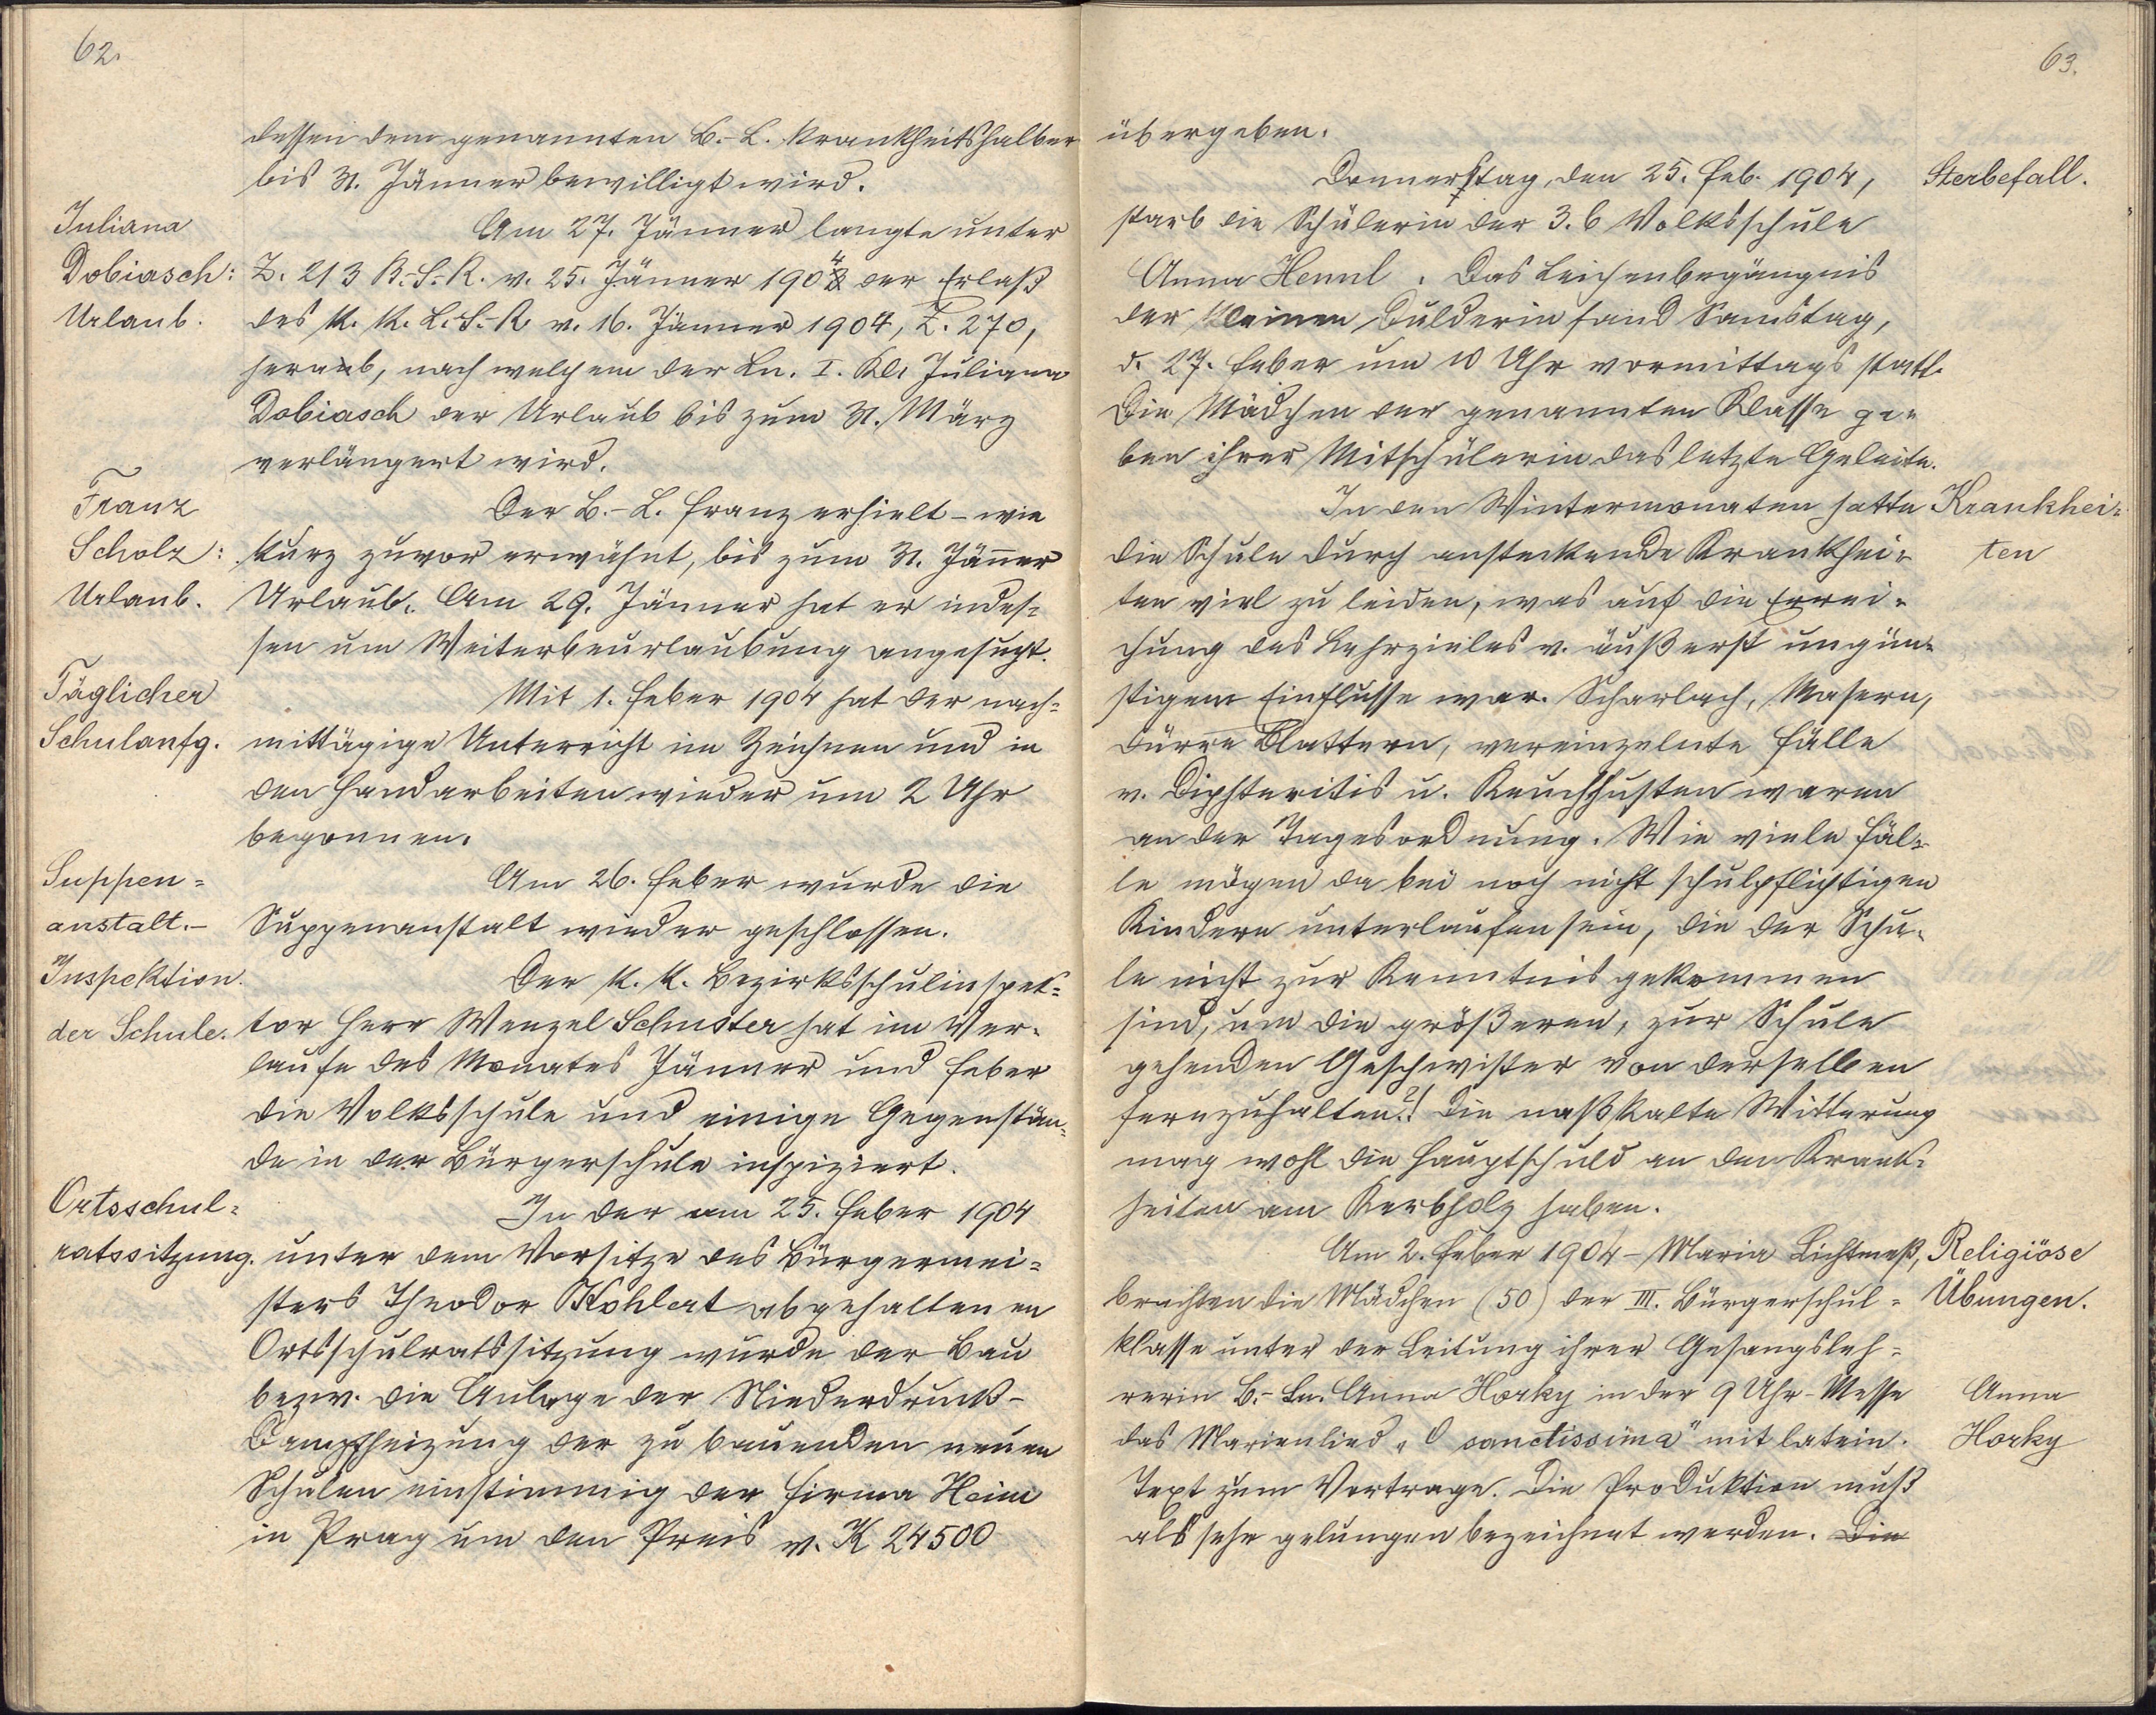 62.
dessen dem genannten B.-L. krankheitshalber
bis 31. Jänner bewilligt wird.
Juliana
Dobiasch:
Urlaub.
Am 27. Jänner langte unter
Z. 213 B.-S.-R. v. 25. Jänner 1904 der Erlaß
des k. k. L.-S.-R. v. 16. Jänner 1904, Z. 270,
herab, nach welchem der Ln. I. Kl. Juliana
Dobiasch der Urlaub bis zum 31. März
verlängert wird.
Franz
Scholz:
Urlaub.
Der B.-L. Franz erhielt - wie
kurz zuvor erwähnt, bis zum 31. Jänner
Urlaub. Am 29. Jänner hat er indes-
sen um Weiterbeurlaubung angesucht.
Täglicher
Schulanfg.
Mit 1. Feber 1904 hat der nach-
mittägige Unterricht im Zeichnen und in
den Handarbeiten wieder um 2 Uhr
begonnen.
Suppen-
anstalt.-
Am 26. Feber wurde die
Suppenanstalt wieder geschlossen.
Inspektion
der Schule.
Der k. k. Bezirksschulinspek-
tor Herr Wenzel Schuster hat im Ver-
laufe des Monates Jänner und Feber
die Volksschule und einige Gegenstän-
de in der Bürgerschule inspiziert.
Ortsschul-
ratssitzung.
In der am 25. Feber 1904
unter dem Vorsitze des Bürgermei-
sters Theodor Kohlert abgehaltenen
Ortsschulratssitzung wurde der Bau
bezw. die Anlage der Niederdruck-
Dampfheizung der zu bauenden neuen
Schulen einstimmig der Firma Heim
in Prag um den Preis v. K 24500
63.
übergeben.
Donnerstag, den 25. Feb. 1904,
Sterbefall.
starb die Schülerin der 3. b Volksschule
Anna Hennl. Das Leichenbegängnis
der kleinen Dulderin fand Samstag,
d. 27. Feber um 10 Uhr vormittags statt.
Die Mädchen der genannten Klasse ga-
ben ihrer Mitschülerin das letzte Geleite.
In den Wintermonaten hatte
Krankhei-
ten
die Schule durch ansteckende Krankhei-
ten viel zu leiden, was auf die Errei-
chung des Lehrzieles v. äußerst ungün-
stigem Einflusse war. Scharlach, Masern,
dürre Blattern, vereinzelnte Fälle
v. Diphteritis u. Keuchhusten waren
an der Tagesordnung. Wie viele Fäl-
le mögen da bei noch nicht schulpflichtigen
Kindern unterlaufen sein, die der Schu-
le nicht zur Kenntnis gekommen
sind, um die größeren, zur Schule
gehenden Geschwister von derselben
fernzuhalten?! Die naßkalte Witterung
mag wohl die Hauptschuld an den Krank-
heiten am Kerbholz haben.
Am 2. Feber 1904 - Maria Lichtmeß,
Religiöse
Übungen.
brachten die Mädchen (50) der III. Bürgerschul-
klasse unter der Leitung ihrer Gesangsleh-
rerin B.-Ln. Anna Horky in der 9 Uhr-Messe
Anna
Horky
das Marienlied „O sanctissima" mit latein.
Text zum Vortrage. Die Produktion muß
als sehr gelungen bezeichnet werden. Die